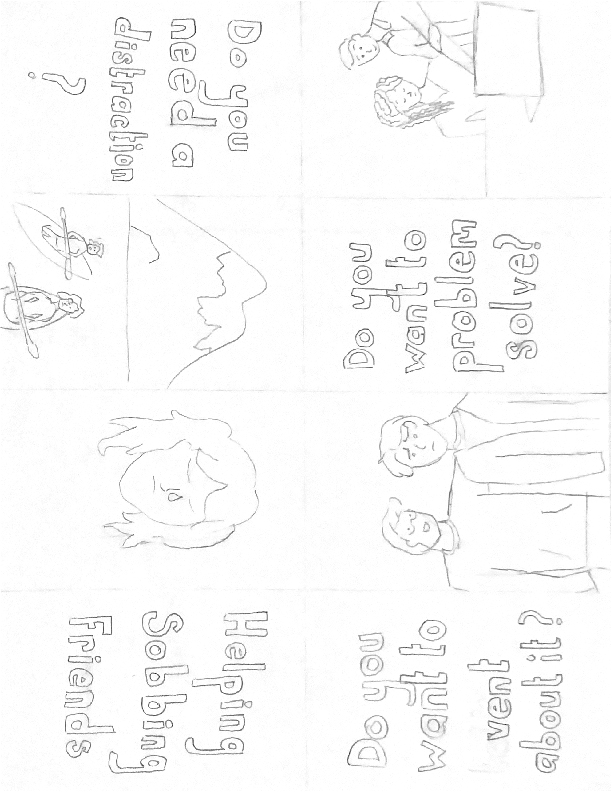 Helping
Sobbing
Friends
Do you
need a
distraction
?
Do you
want to
vent
about it?
Do you
want to
problem
solve?